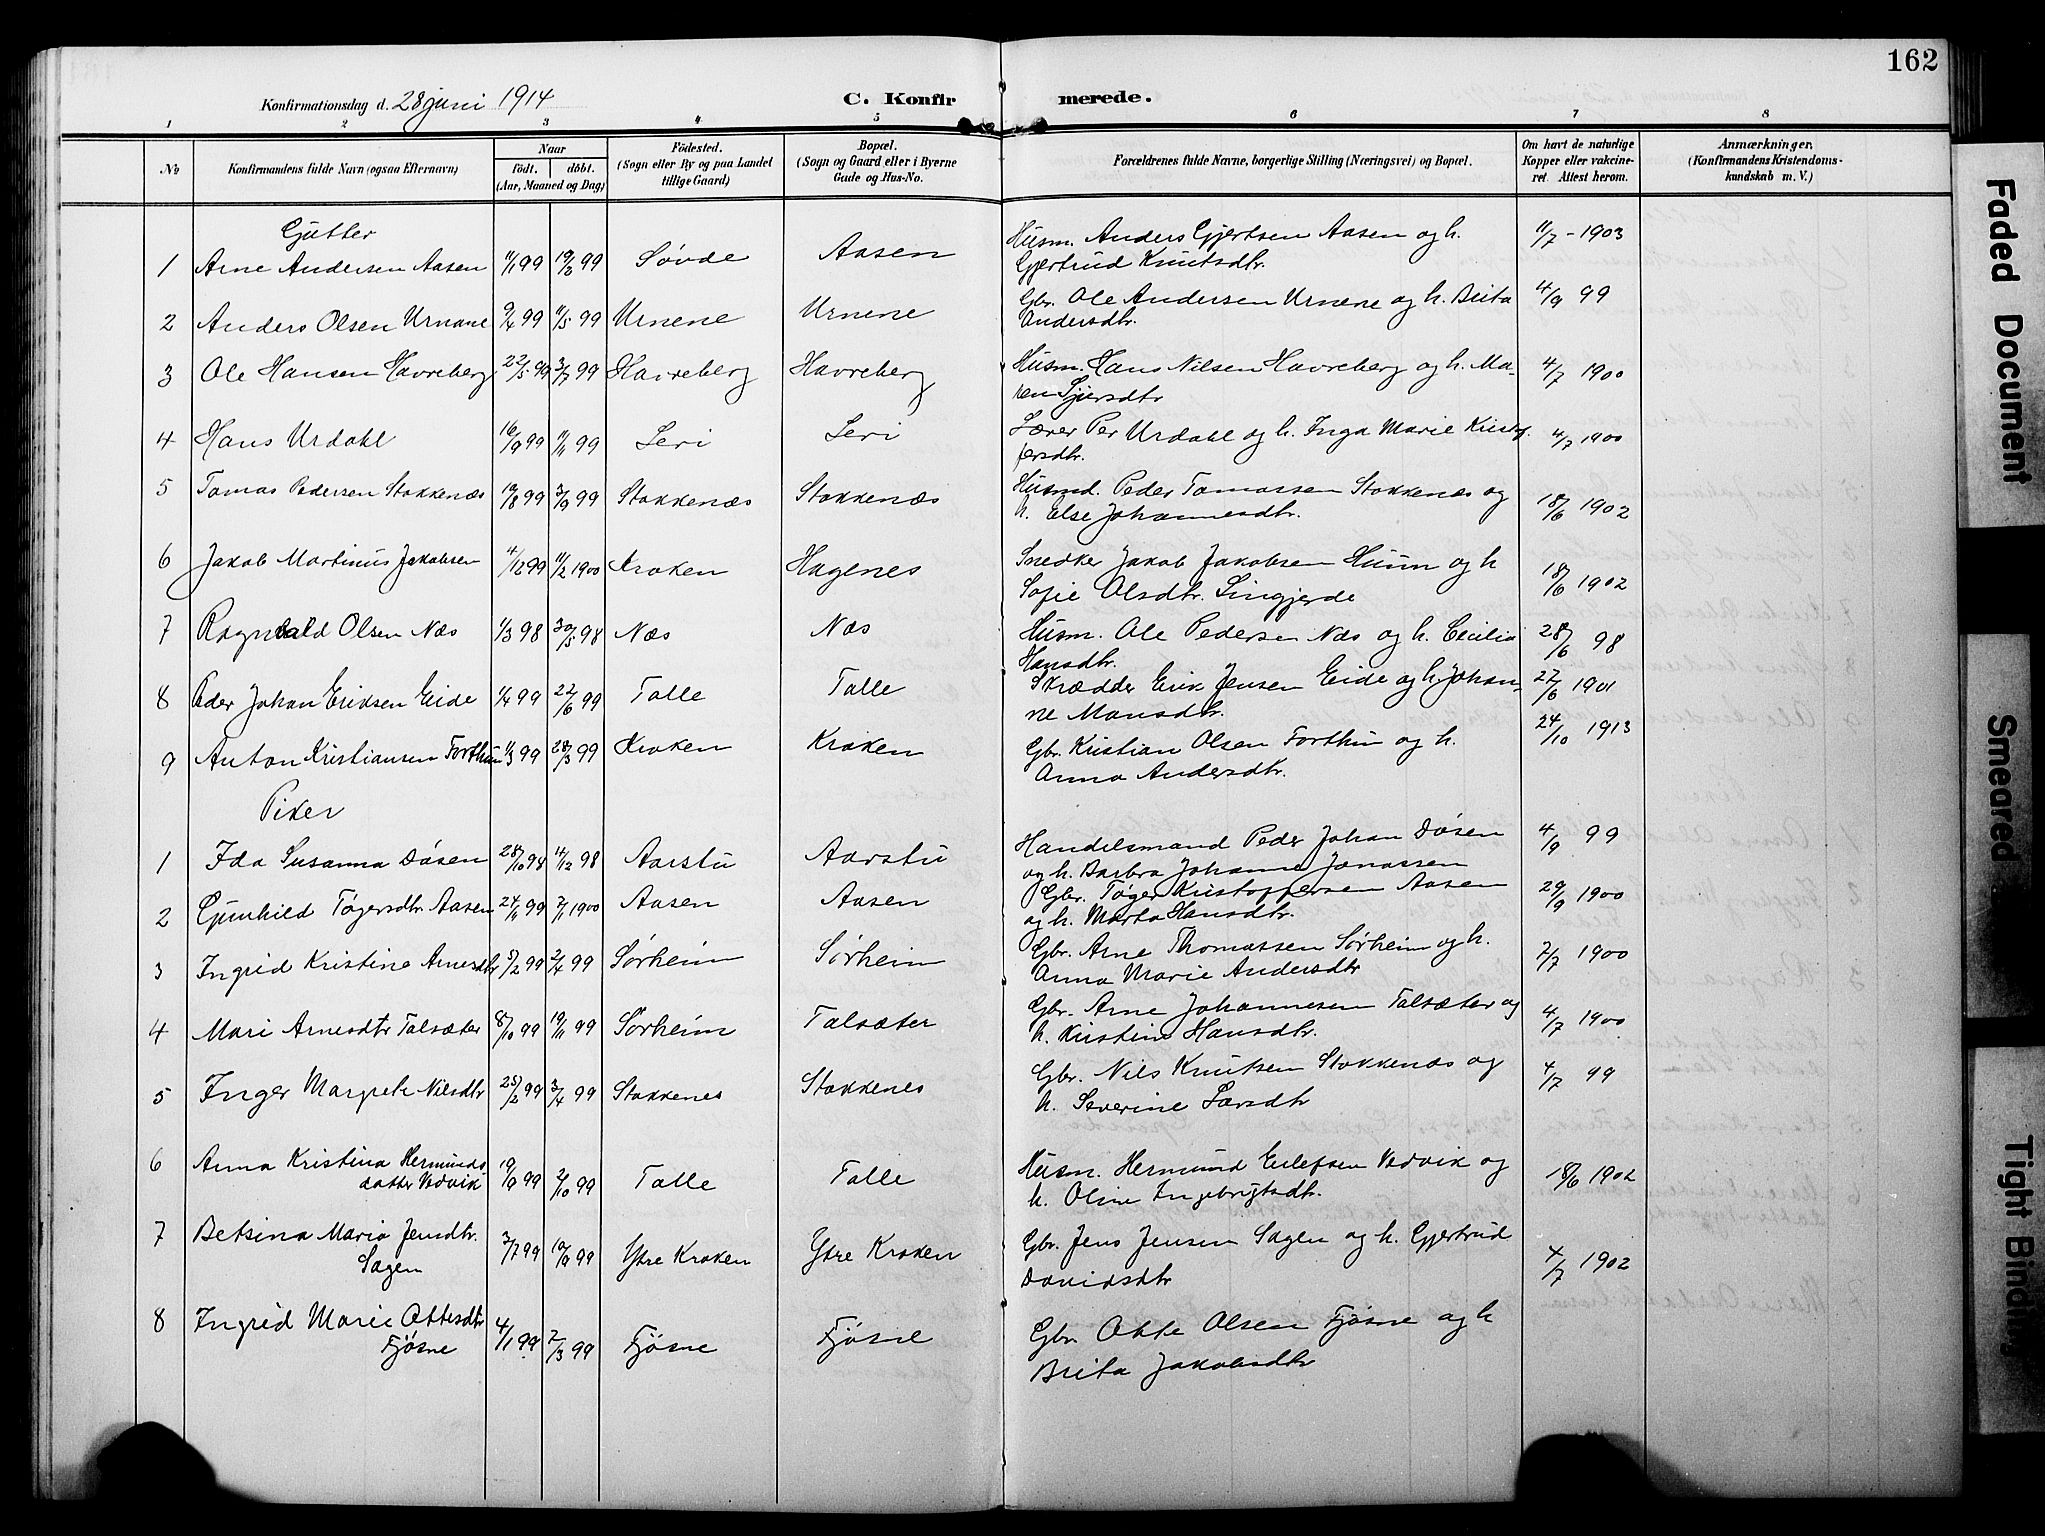 162
Konfirmationsdag d. 28 juni 1914
C. Konfirmerede.
1 2 3 4 5 6 7 8
No.
Konfirmandens fulde Navn (ogsaa Efternavn)
Naar
født. døbt.
(Aar, Maaned og Dag)
Fødested.
(Sogn eller By og paa Landet
tillige Gaard)
Bopæl.
(Sogn og Gaard eller i Byerne
Gade og Hus-No.
Forældrenes fulde Navne, borgerlige Stilling (Næringsvei) og Bopæl.
Om havt de naturlige
Kopper eller vakcine-
ret. Attest herom.
Anmærkninger.
(Konfirmandens Kristendoms-
kundskab m. V.)
Gutter
1 Arne Andersen Aasen 11/1 99 19/3 99 Søvde Aasen Husm. Anders Gjertsen Aasen og h. 11/7 - 1903
Gjertrud Knutsdtr.
2 Anders Olsen Urnane 9/4 99 11/5 99 Urnene Urnene Gbr. Ole Andersen Urnene og h. Brita 4/9 99
Andersdtr.
3 Ole Hansen Havreberg 22/5 99 3/7 99 Havreberg Havreberg Husm. Hans Nilsen Havreberg og h. Ma- 4/7 1900
ren Sjursdtr
4 Hans Urdahl 16/9 99 11/11 99 Leri Leri Lærer Per Urdahl og h. Inga Marie Kristof- 4/7 1900
fersdtr.
5 Tomas Pedersen Stokkenæs 19/8 99 3/9 99 Stokkenæs Stokkenæs Husmd. Peder Tomassen Stokkenæs og 18/6 1902
h. Else Johannesdtr.
6 Jakob Martinus Jakobsen 4/12 99 11/2 1900 Kroken Hagenes Snedker Jakob Jakobsen Huum og h 18/6 1902
Sofie Olsdtr. Lingjerde
7 Ragnvald Olsen Næs 1/3 98 30/5 98 Næs Næs Husm. Ole Pedersen Næs og h. Cecilia 28/6 98
Hansdtr.
8 Peder Johan Eriksen Eide 1/4 99 22/6 99 Talle Talle Skrædder Erik Jensen Eide og h. Johan- 27/6 1901
ne Monsdtr.
9 Anton Kristiansen Forthun 1/3 99 28/3 99 Kroken Kroken Gbr. Kristian Olsen Forthun og h. 24/10 1913
Anna Andersdtr.
Piker
1 Ida Susanna Døsen 28/10 98 14/12 98 Aarstu Aarstu Handelsmand Peder Johan Døsen 4/9 99
og h. Barbra Johanne Jonassen
2 Gunhild Tøgersdtr Aasen 24/11 99 7/1 1900 Aasen Aasen Gbr. Tøger Kristoffersen Aasen 29/9 1900
og h. Marta Hansdtr.
3 Ingrid Kristine Arnesdtr 5/2 99 2/4 99 Sørheim Sørheim Gbr. Arne Thomassen Sørheim og h. 7/7 1900
Anna Marie Andersdtr
4 Mari Arnesdtr Talsæter 8/10 99 19/11 99 Sørheim Talsæter Gbr. Arne Johannesen Talsæter og 4/7 1900
h. Kristine Hansdtr.
5 Inger Margrete Nilsdtr 25/2 99 3/4 99 Stokkenes Stokkenes Gbr. Nils Knutsen Stokkenæs og 4/7 99
h. Severine Larsdtr
6 Anna Kristina Hermunds 19/9 99 2/10 99 Talle Talle Husm. Hermund Eilefsen Vedvik og 18/6 1902
datter Vedvik h. Oline Ingebrigtsdtr.
7 Betsina Maria Jensdtr. 3/7 99 10/9 99 Ytre Kroken Ytre Kroken Gbr. Jens Jensen Sagen og h. Gjertrud 4/7 1902
Sagen Davidsdtr
8 Ingrid Marie Ottesdtr 4/1 99 7/3 99 Fjøsne Fjøsne Gbr. Otte Olsen Fjøsne og h
Fjøsne Brita Jakobsdtr
Faded Document
Smeared
Tight Binding